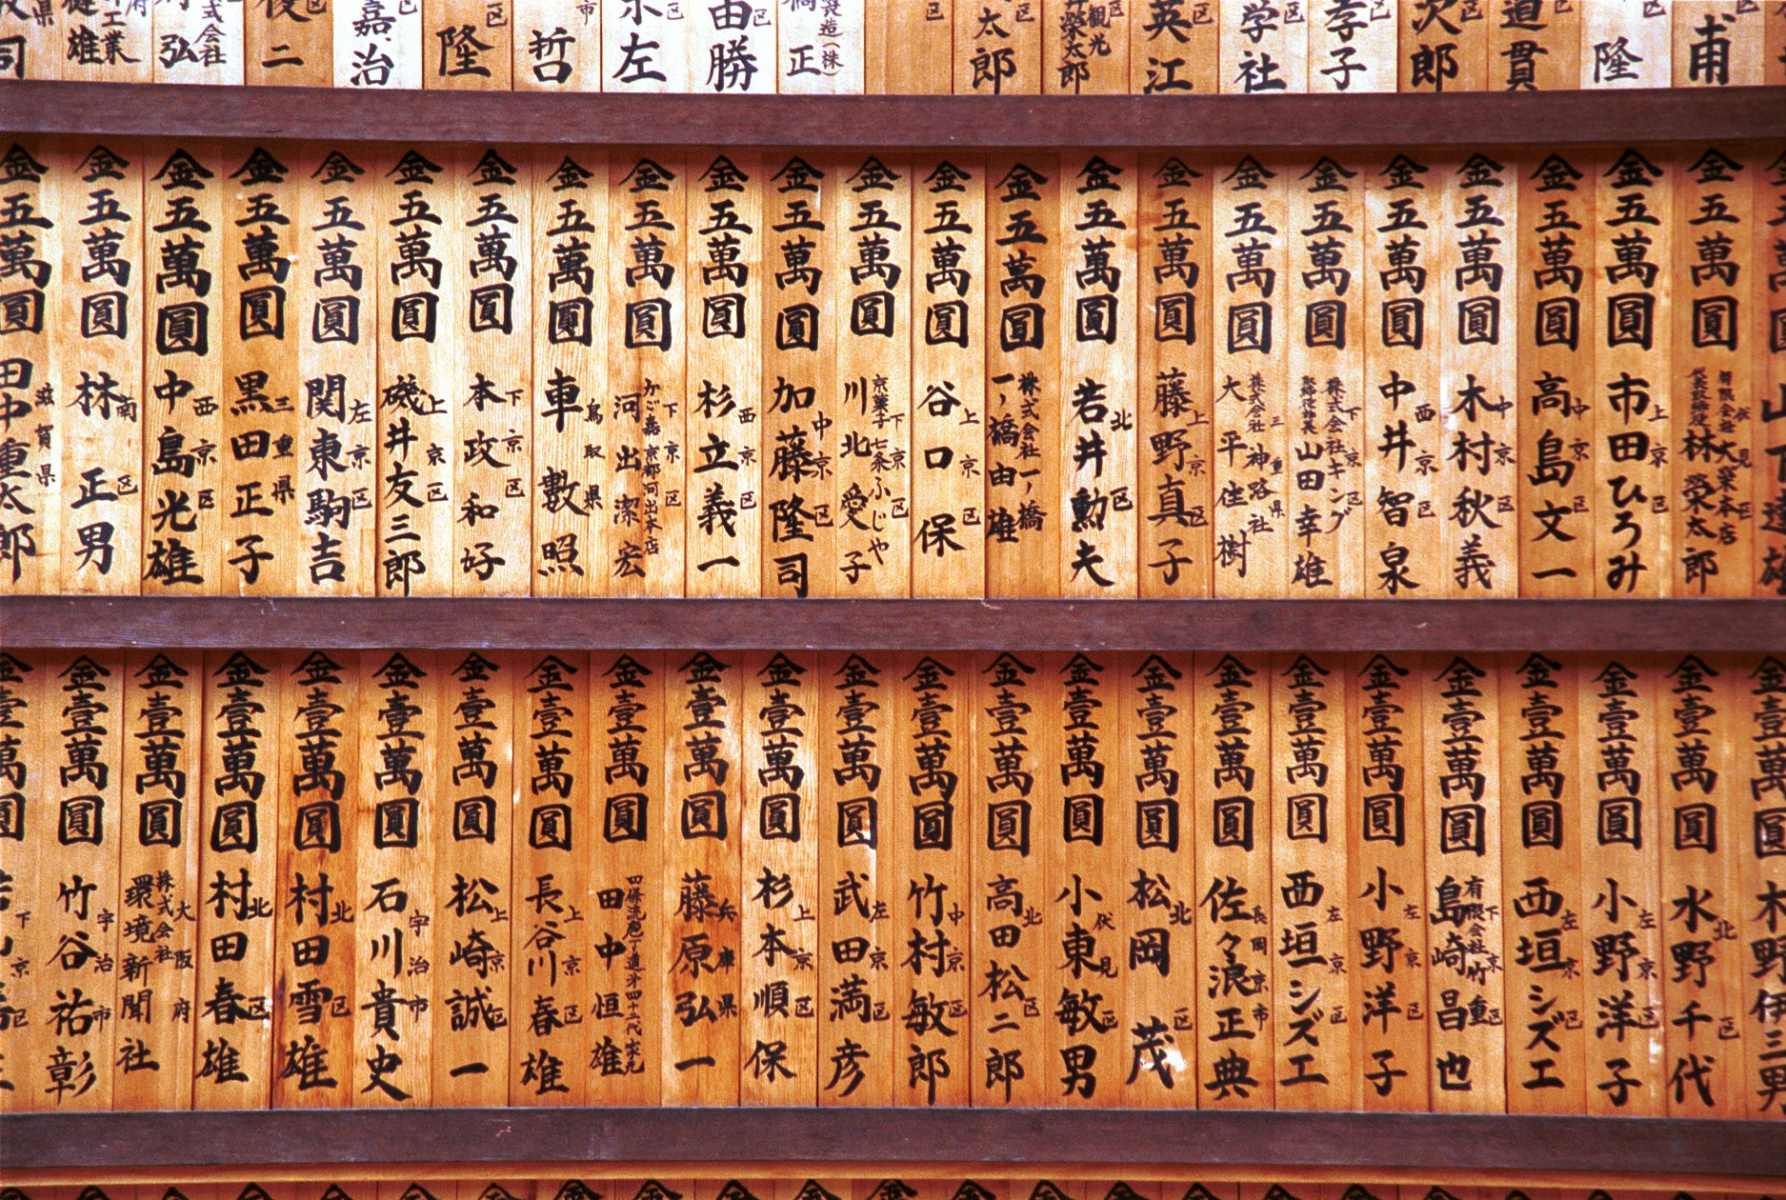 甫
区 隆
道貫
区 次郎
区 孝子
区 学社
区 英江
観光 榮太郎
区 太郎
区
製造(株) 正
区 由勝
区 左
市 哲
区 隆
区 嘉治
区 二
式会社 弘
工業 健雄
県 司
金五萬圓 伏見区 有限会社大榮本店 林榮太郎
金五萬圓 上京区 市田ひろみ
金五萬圓 中京区 高島文一
金五萬圓 中京区 木村秋義
金五萬圓 西京区 中井智泉
金五萬圓 下京区 株式会社キング 取締役社長 山田幸雄
金五萬圓 三重県 株式会社神路社 大平佳樹
金五萬圓 上京区 藤野真子
金五萬圓 北区 若井勲夫
金五萬圓 株式会社一ノ橋 一ノ橋由雄
金五萬圓 上京区 谷口保
金五萬圓 下京区 京菓子七条ふじや 川北愛子
金五萬圓 中京区 加藤隆司
金五萬圓 西京区 杉立義一
金五萬圓 下京区 かご嘉京都河出本店 河出潔宏
金五萬圓 鳥取県 車數照
金五萬圓 下京区 本政和好
金五萬圓 上京区 磯井友三郎
金五萬圓 左京区 関東駒吉
金五萬圓 三重県 黒田正子
金五萬圓 西京区 中島光雄
金五萬圓 南区 林正男
金五萬圓 滋賀県 田中重太郎
金壹萬圓 木野伊三男
金壹萬圓 北区 水野千代
金壹萬圓 左京区 小野洋子
金壹萬圓 左京区 西垣シズエ
金壹萬圓 下京区 有限会社竹重 島崎昌也
金壹萬圓 左京区 小野洋子
金壹萬圓 左京区 西垣シズエ
金壹萬圓 長岡京市 佐々浪正典
金壹萬圓 北区 松岡茂
金壹萬圓 伏見区 小東敏男
金壹萬圓 北区 高田松二郎
金壹萬圓 中京区 竹村敏郎
金壹萬圓 左京区 武田満彦
金壹萬圓 上京区 杉本順保
金壹萬圓 兵庫県 藤原弘一
金壹萬圓 四條流庖丁道才四十二代家元 田中恒雄
金壹萬圓 上京区 長谷川春雄
金壹萬圓 上京区 松崎誠一
金壹萬圓 宇治市 石川貴史
金壹萬圓 北区 村田雪雄
金壹萬圓 北区 村田春雄
金壹萬圓 大阪府 株式会社 環境新聞社
金壹萬圓 宇治市 竹谷祐彰
金壹萬圓 下京区